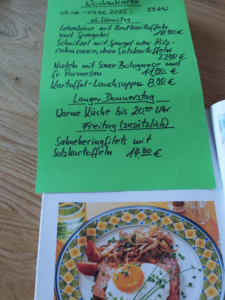 Wochenkarte
03.06. - 07.06.2025 23.KW
ab Dienstag
Leberkäse mit Bratkartoffeln
und Spiegelei 14,90 €
Schnitzel mit Spargel oder Pilz-
rahmsauce, dazu Salzkartoffeln
22,90 €
Nudeln mit Sauce Bolognaise und
fr. Parmesan 11,80 €
Kartoffel-Lauchsuppe 8,90 €
Langer Donnerstag
Warme Küche bis 20.00 Uhr
Freitag (zusätzlich)
Sahneheringfilets mit
Salzkartoffeln 14,80 €